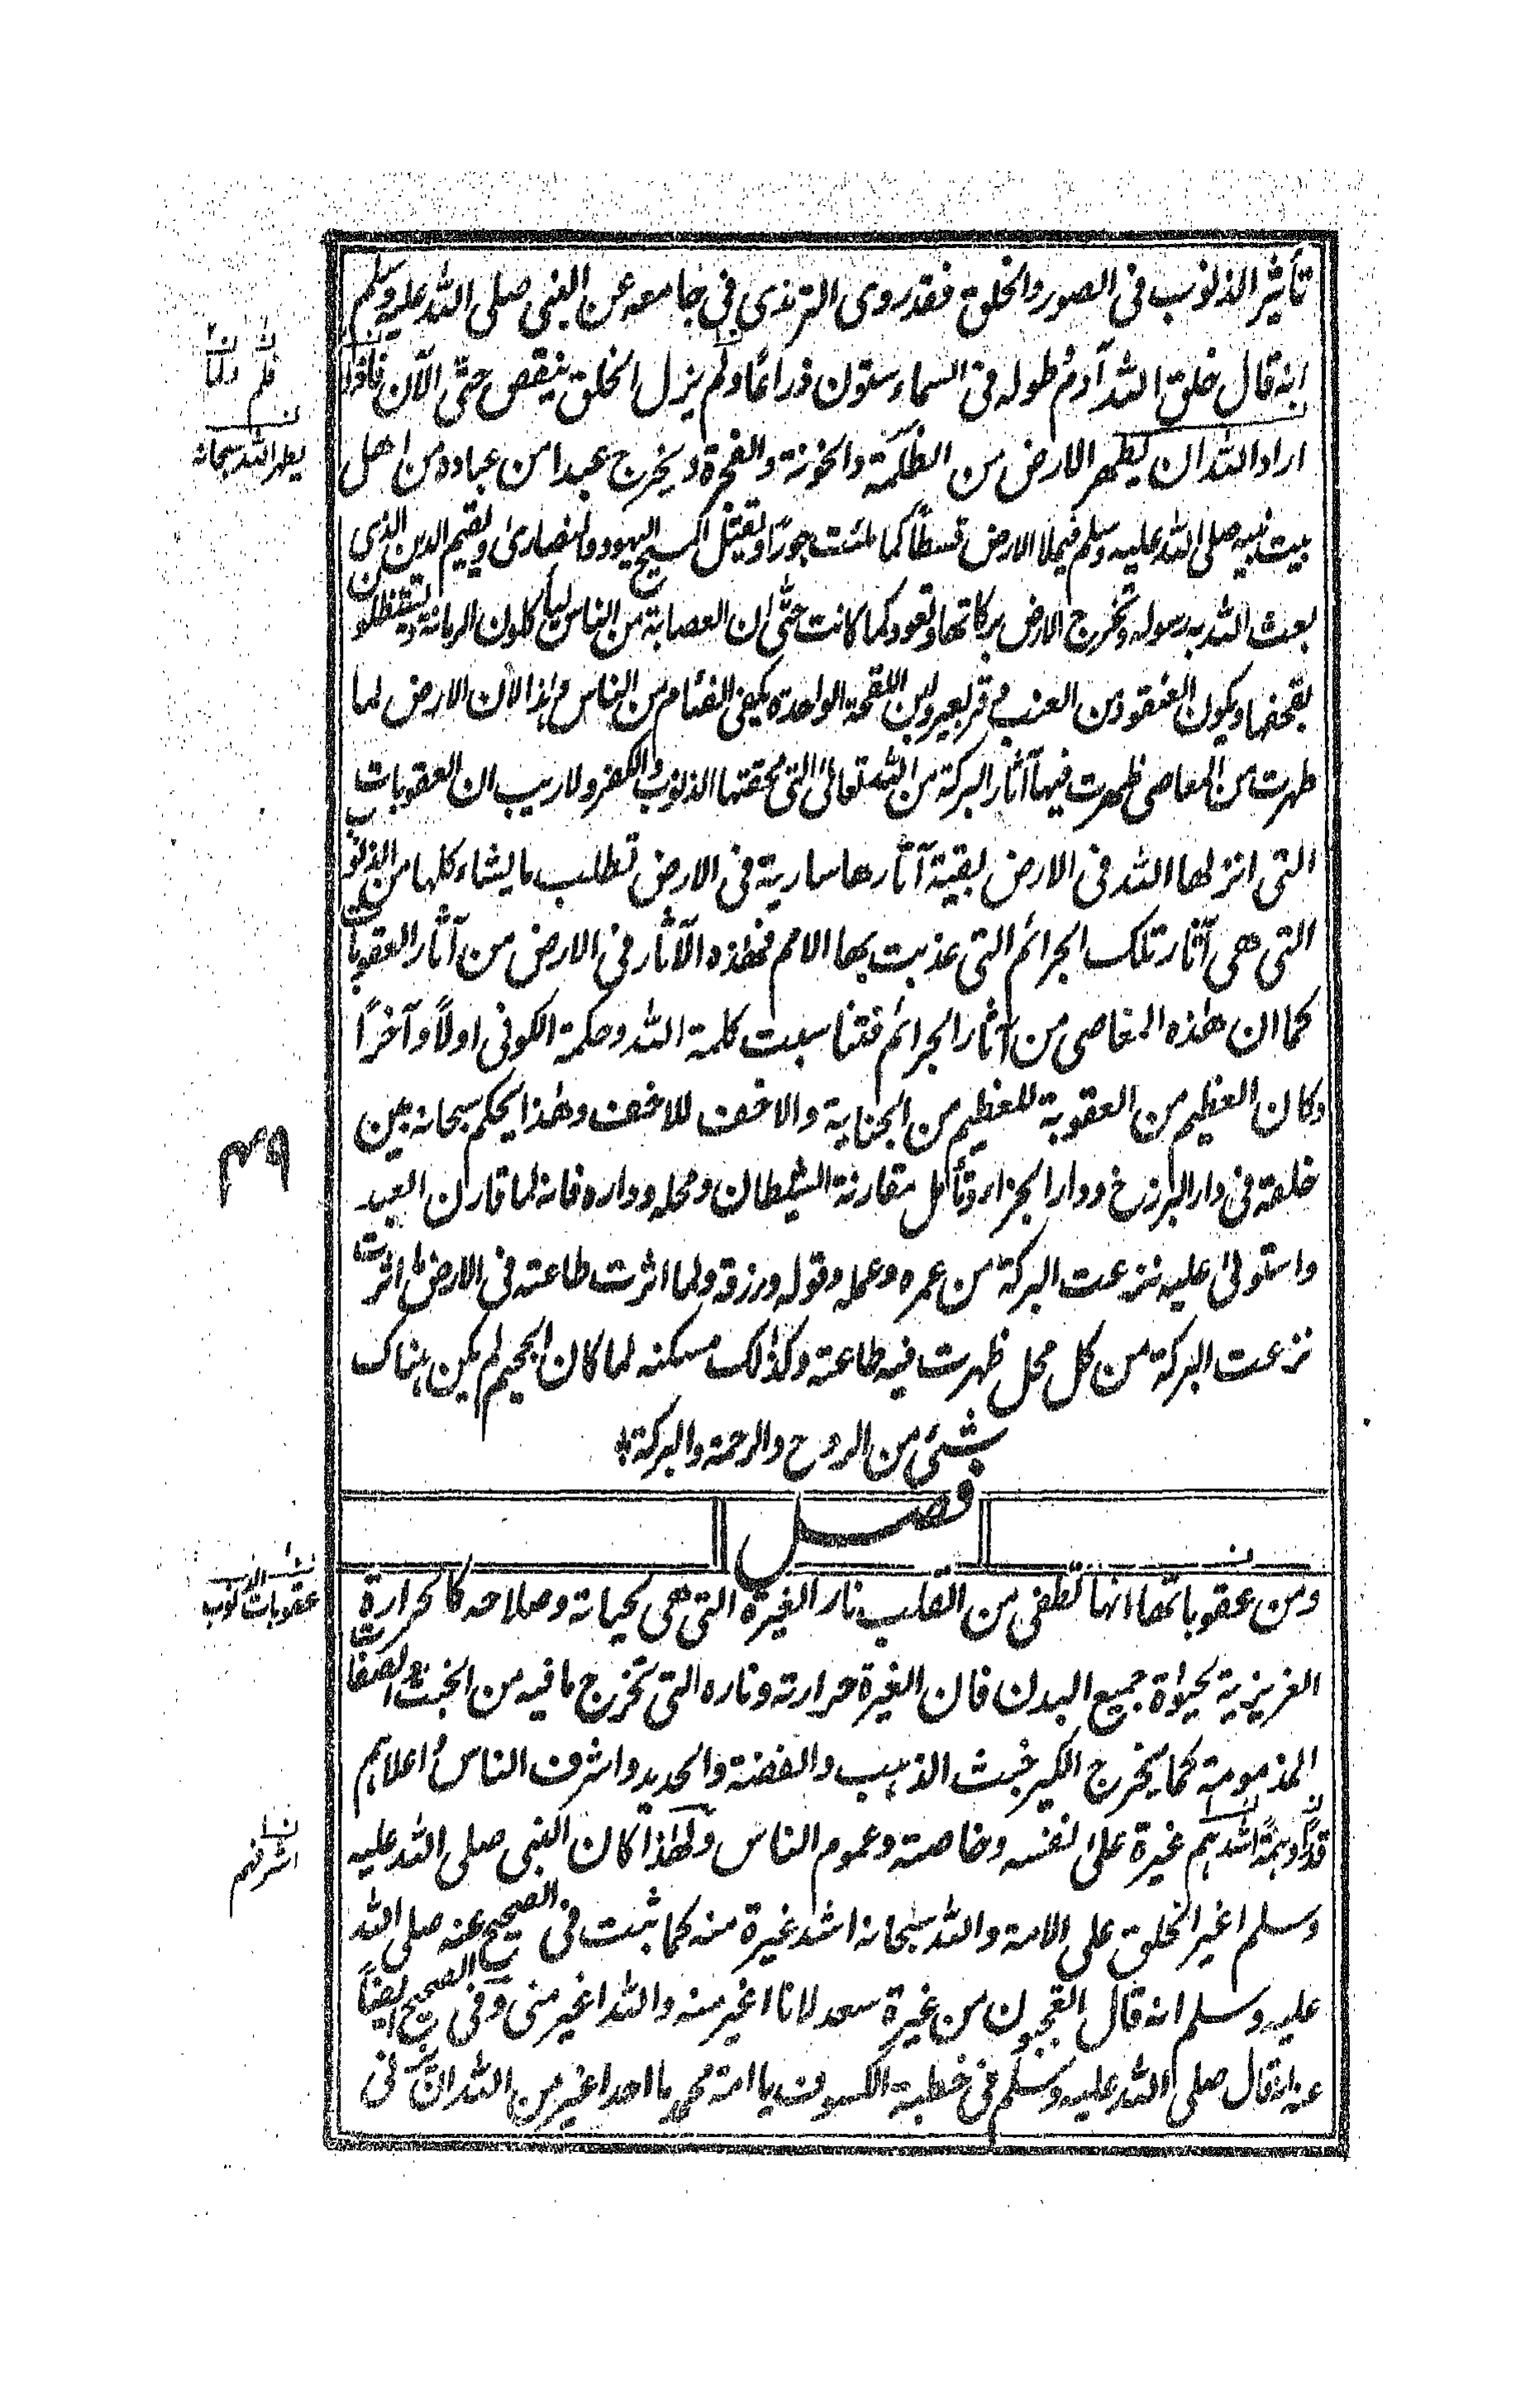 تأثير الذنوب فى الصور والخلق فقد روى الترمذى فى جامعه عن النبى صلى الله عليه وسلم
انه قال خلق الله آدم طوله فى السماء ستون ذراعًا ولم يزل الخلق ينقص حتى الآن فاذا
اراد الله ان يطهر الارض من الظلمة والخونة والفجرة ويخرج عبدا من عباده من اهل
بيت نبيه صلى الله عليه وسلم فيملا الارض قسطاً كما ملئت جورًا ويقتل المسيح اليهود والنصارى ويقيم الدين الذى
بعث الله به رسوله وتخرج الارض بركاتها وتعود كما كانت حتى ان العصابة من الناس ليأكلون الرمانة ويستظلون
بقحفها ويكون العنقود من العنب وقر بعير ولبن اللقحة الواحدة يكفى الفئام من الناس وهذا لان الارض لما
طهرت من المعاصى ظهرت فيها آثار البركة من الله تعالى التى محقتها الذنوب والكفر ولا ريب ان العقوبات
التى انزلها الله فى الارض بقية آثارها سارية فى الارض تطلب ما يشاءكلها من الذنوب
التى هى آثار تلك الجرائم التى عذبت بها الامم فهذه الآثار فى الارض من آثار العقوبات
كما ان هذه المعاصى من آثار الجرائم فتناسبت كلمة الله وحكمة الكونى اولاً وآخرًا
وكان العظيم من العقوبة للعظيم من الجناية والاخف للاخف وهذا يحكم سبحانه بين
خلقه فى دار البرزخ ودار الجزاء وتأمل مقارنة الشيطان ومحله وداره فانه لما قارن العبد
واستولى عليه نزعت البركة من عمره وعمله وقوله ورزقه ولما اثرت طاعته فى الارض ما اثرت
نزعت البركة من كل محل ظهرت فيه طاعته وكذلك مسكنه لما كان الجحيم لم يكن هناك
شئ من الروح والرحمة والبركة
فصل
ومن عقوباتها انها تطفى من القلب نار الغيرة التى هى لحياته وصلاحه كالحرارة
الغريزية لحيواة جميع البدن فان الغيرة حرارته وناره التى تخرج ما فيه من الخبث والصفات
المذمومة كما يخرج الكير خبث الذهب والفضة والحديد واشرف الناس واعلاهم
قدرًا وهمةً اشدهم غيرة على نفسه وخاصته وعموم الناس ولهذا كان النبى صلى الله عليه
وسلم اغير الخلق على الامة والله سبحانه اشد غيرة منه كما ثبت فى الصحيح عنه صلى الله
عليه وسلم انه قال اتعجبون من غيرة سعد لانا اغير منه والله اغير منى وفى الصحيح ايضاً
عنه انه قال صلى الله عليه وسلم فى خطبة الكسوف يا امة محمد ما احد اغير من الله ان يزنى
فلم ولما
يطهر الله سبحانه
٤٩
عقوبات الذنوب
اشرفهم